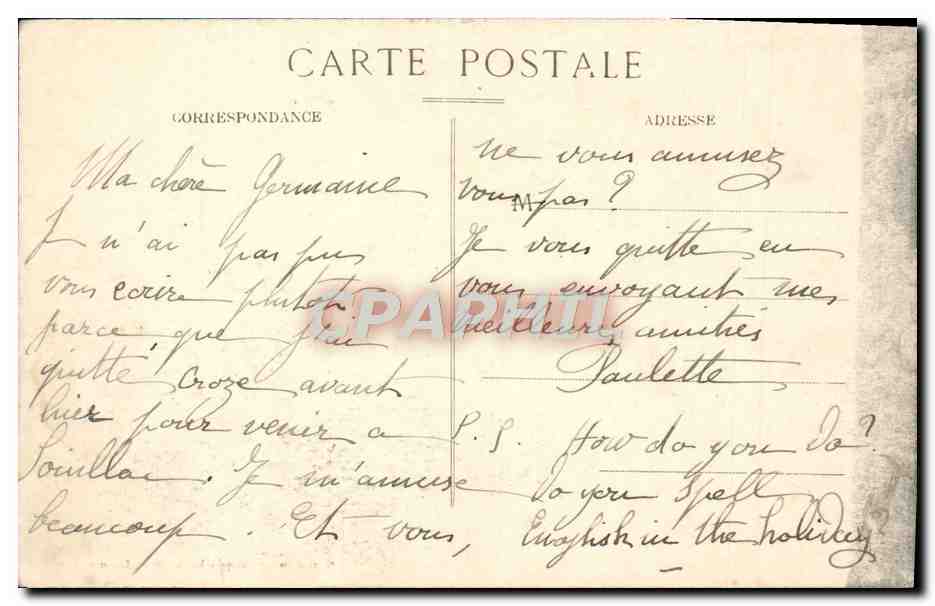 CARTE POSTALE
CORRESPONDANCE
Ma chère Germaine
J n'ai pas pu
vous ecrire plutot
parce que j'ai
quitté Croze avant
hier pour venir a
Souillac. Je m'amuse
beaucoup. Et vous,
ADRESSE
ne vous amusez
vous pas?
M
Je vous quitte en
vous envoyant mes
meilleures amitiés
Paulette
P. S. How do you do?
do you spell
English in the holiday
CPARHIL